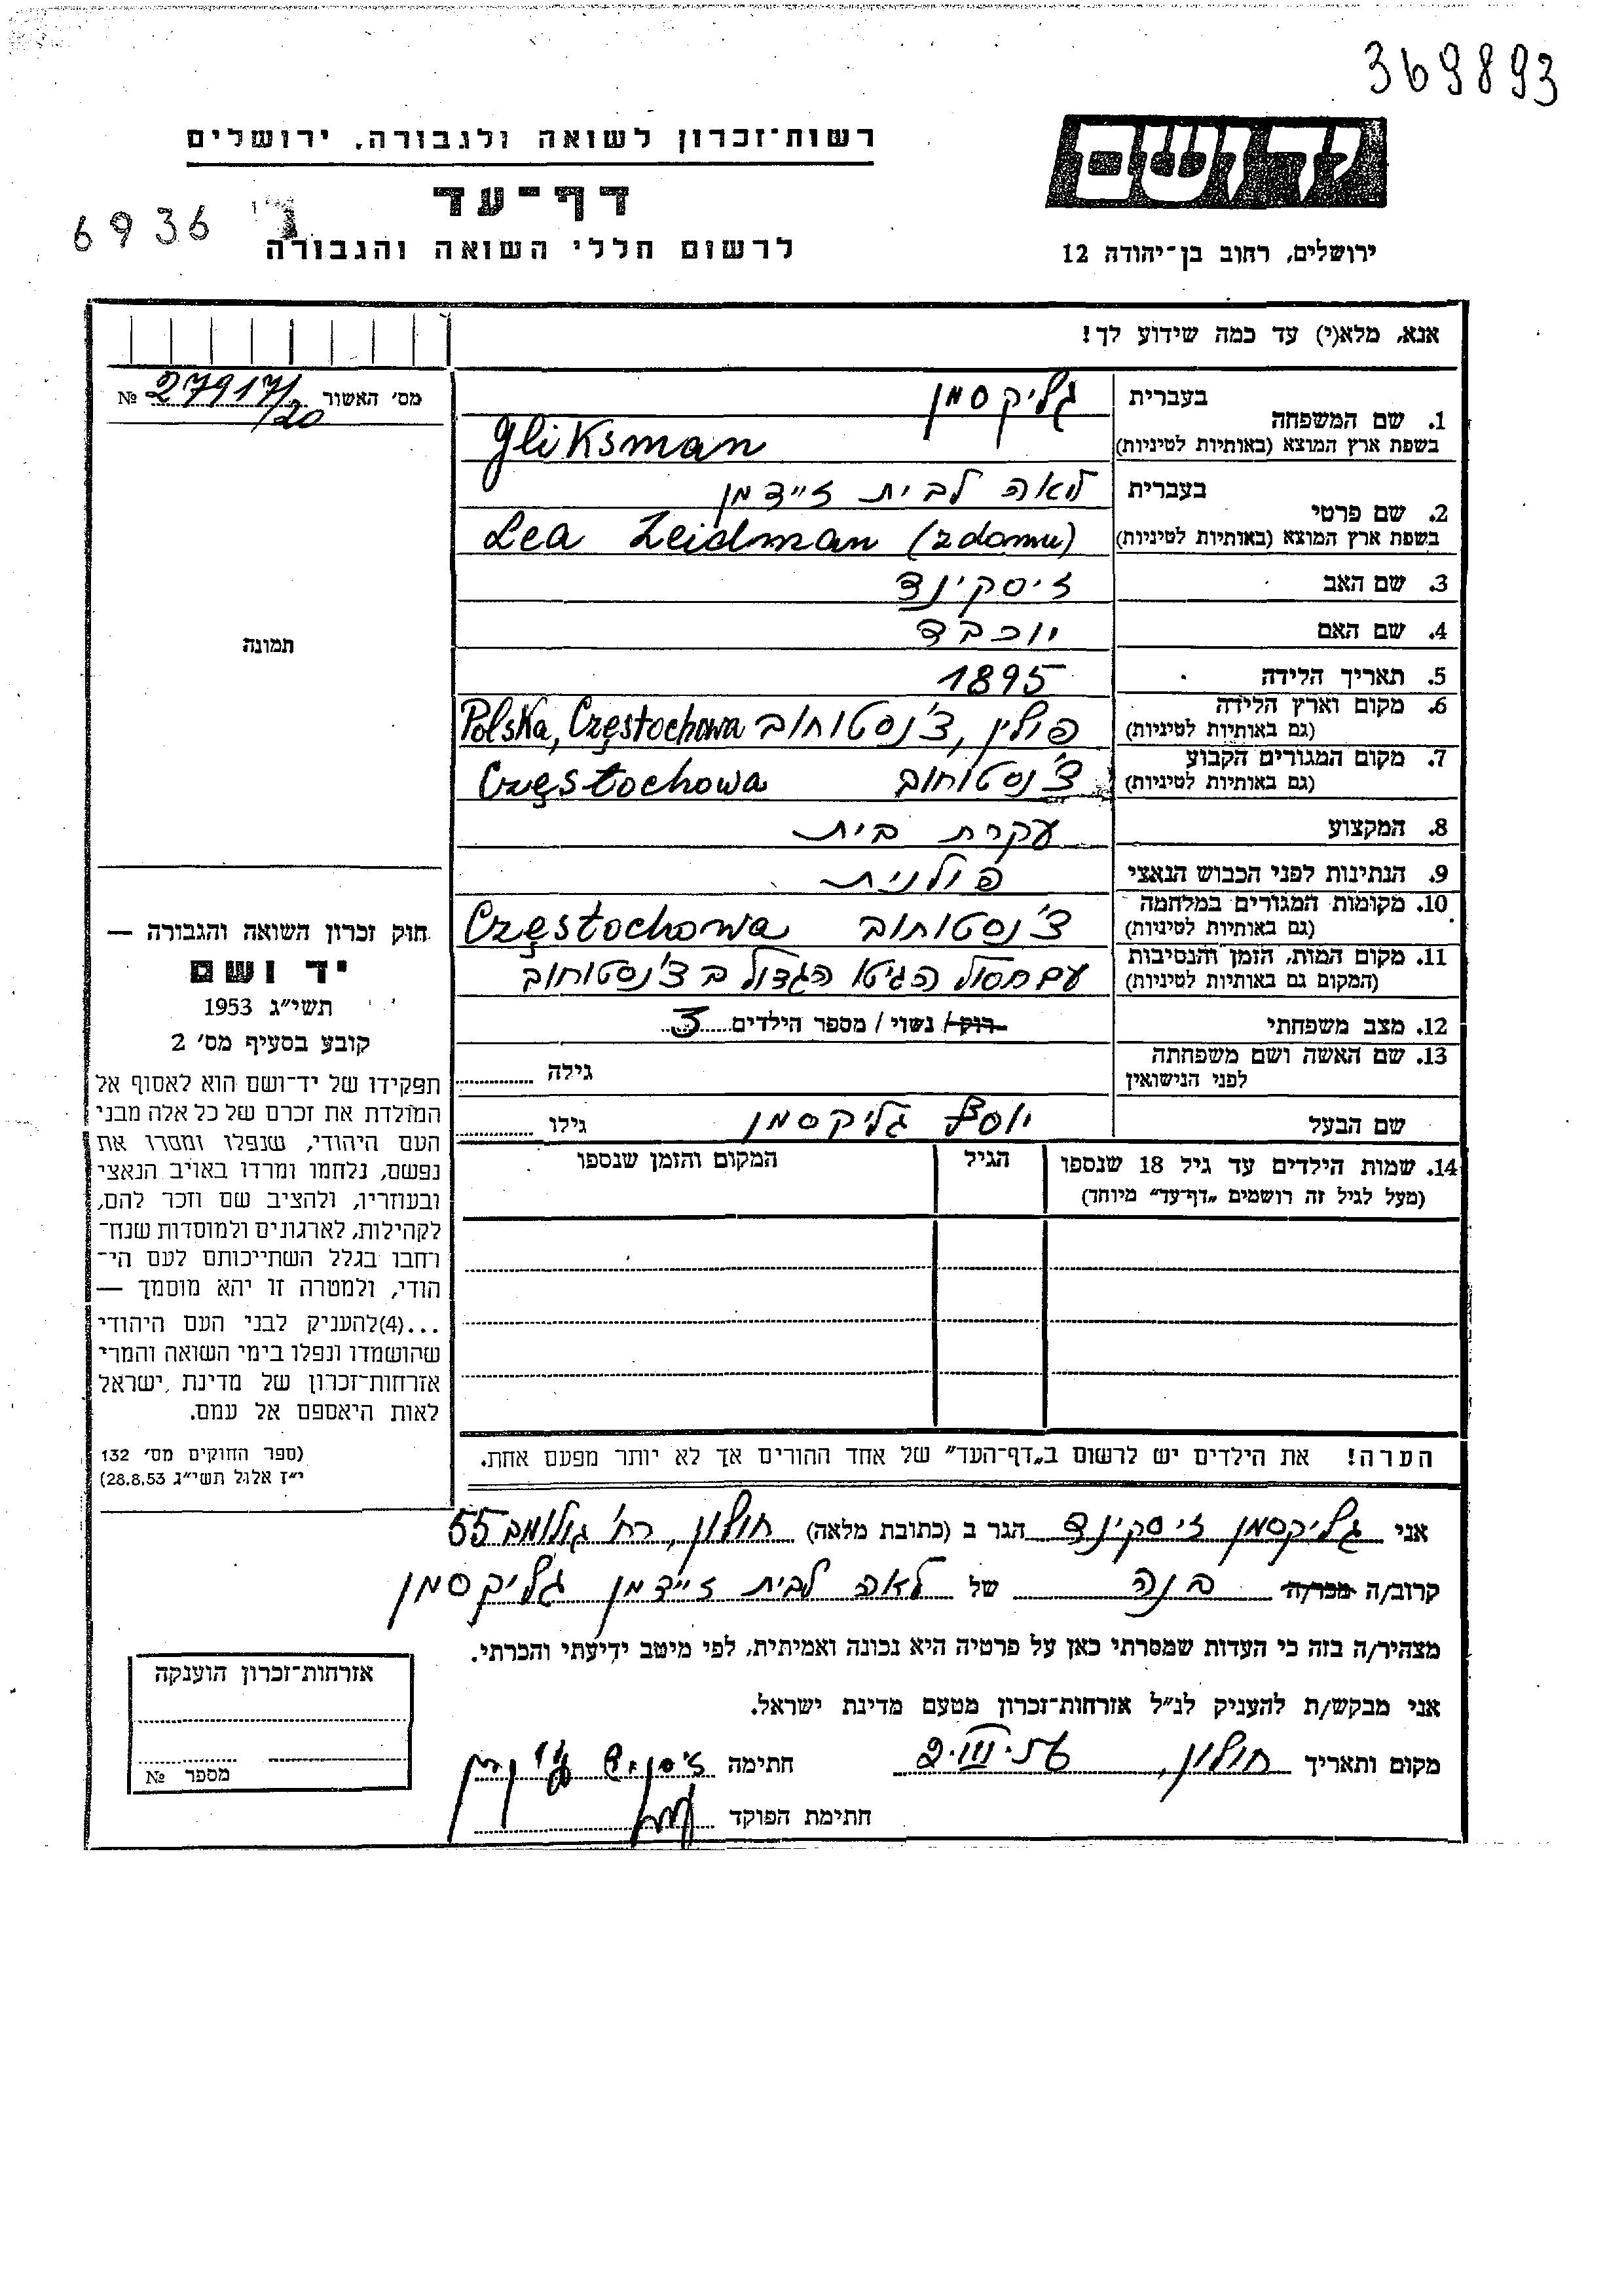 369893
יד ושם
ירושלים, רחוב בן־יהודה 12
רשות־זכרון לשואה ולגבורה, ירושלים
דף־עד
לרשום חללי השואה והגבורה
6936
אנא, מלא(י) עד כמה שידוע לך!
מס׳ האשור № 27917/20
תמונה
1. שם המשפחה
בעברית גליקסמן
בשפת ארץ המוצא (באותיות לטיניות) Gliksman
2. שם פרטי
בעברית לאה לבית זיידמן
בשפת ארץ המוצא (באותיות לטיניות) Lea Zeidman (z domu)
3. שם האב זיסקינד
4. שם האם יוכבד
5. תאריך הלידה 1895
6. מקום וארץ הלידה
(גם באותיות לטיניות) פולין, צ'נסטוחוב Polska, Częstochowa
7. מקום המגורים הקבוע
(גם באותיות לטיניות) צ'נסטוחוב Częstochowa
8. המקצוע עקרת בית
9. הנתינות לפני הכבוש הנאצי פולנית
10. מקומות המגורים במלחמה
(גם באותיות לטיניות) צ'נסטוחוב Częstochowa
11. מקום המות, הזמן והנסיבות
(המקום גם באותיות לטיניות) עם חסול הגיטו הגדול ב צ'נסטוחוב
12. מצב משפחתי רוק/ נשוי / מספר הילדים 3
13. שם האשה ושם משפחתה
לפני הנישואין גילה
שם הבעל יוסף גליקסמן גילו
14. שמות הילדים עד גיל 18 שנספו
(מעל לגיל זה רושמים „דף־עד״ מיוחד)
הגיל
המקום והזמן שנספו
הערה! את הילדים יש לרשום ב„דף־העד״ של אחד ההורים אך לא יותר מפעם אחת.
חוק זכרון השואה והגבורה —
יד ושם
תשי״ג 1953
קובע בסעיף מס׳ 2
תפקידו של יד־ושם הוא לאסוף אל
המולדת את זכרם של כל אלה מבני
העם היהודי, שנפלו ומסרו את
נפשם, נלחמו ומרדו באויב הנאצי
ובעוזריו, ולהציב שם וזכר להם,
לקהילות, לארגונים ולמוסדות שנח־
רחבו בגלל השתייכותם לעם הי־
הודי, ולמטרה זו יהא מוסמך —
...(4)להעניק לבני העם היהודי
שהושמדו ונפלו בימי השואה והמרי
אזרחות־זכרון של מדינת ישראל
לאות היאספם אל עמם.
(ספר החוקים מס׳ 132
י״ז אלול תשי״ג 28.8.53)
אני גליקסמן זיסקינד הגר ב (כתובת מלאה) חולון, רח' גולומב 55
קרוב/ה מכר/ה בנה של לאה לבית זיידמן גליקסמן
מצהיר/ה בזה כי העדות שמסרתי כאן על פרטיה היא נכונה ואמיתית, לפי מיטב ידיעתי והכרתי.
אני מבקש/ת להעניק לנ״ל אזרחות־זכרון מטעם מדינת ישראל.
מקום ותאריך חולון, חתימה
חתימת הפוקד
אזרחות־זכרון הוענקה
מספר №